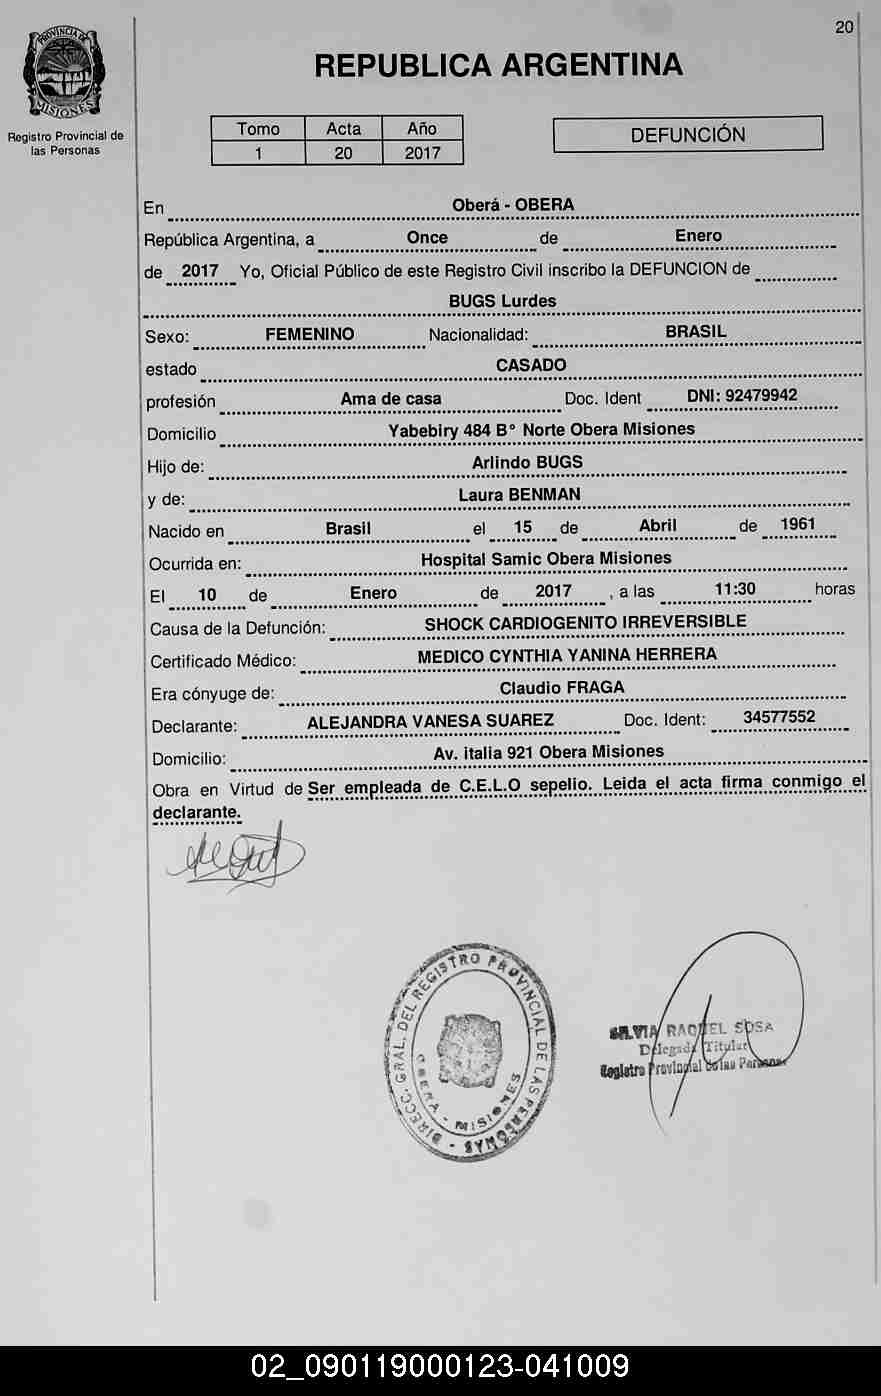 20
PROVINCIA DE
MISIONES
Registro Provincial de
las Personas
REPUBLICA ARGENTINA
Tomo Acta Año
1 20 2017
DEFUNCIÓN
En Oberá - OBERA
República Argentina, a Once de Enero
de 2017 Yo, Oficial Público de este Registro Civil inscribo la DEFUNCION de
BUGS Lurdes
Sexo: FEMENINO Nacionalidad: BRASIL
estado CASADO
profesión Ama de casa Doc. Ident DNI: 92479942
Domicilio Yabebiry 484 B° Norte Obera Misiones
Hijo de: Arlindo BUGS
y de: Laura BENMAN
Nacido en Brasil el 15 de Abril de 1961
Ocurrida en: Hospital Samic Obera Misiones
El 10 de Enero de 2017 , a las 11:30 horas
Causa de la Defunción: SHOCK CARDIOGENITO IRREVERSIBLE
Certificado Médico: MEDICO CYNTHIA YANINA HERRERA
Era cónyuge de: Claudio FRAGA
Declarante: ALEJANDRA VANESA SUAREZ Doc. Ident: 34577552
Domicilio: Av. italia 921 Obera Misiones
Obra en Virtud de Ser empleada de C.E.L.O sepelio. Leida el acta firma conmigo el
declarante.
DIRECC. GRAL. DEL REGISTRO PROVINCIAL DE LAS PERSONAS -
OBERA - MISIONES
SILVIA RAQUEL SOSA
Delegada Titular
Registro Provincial de las Personas
02_090119000123-041009